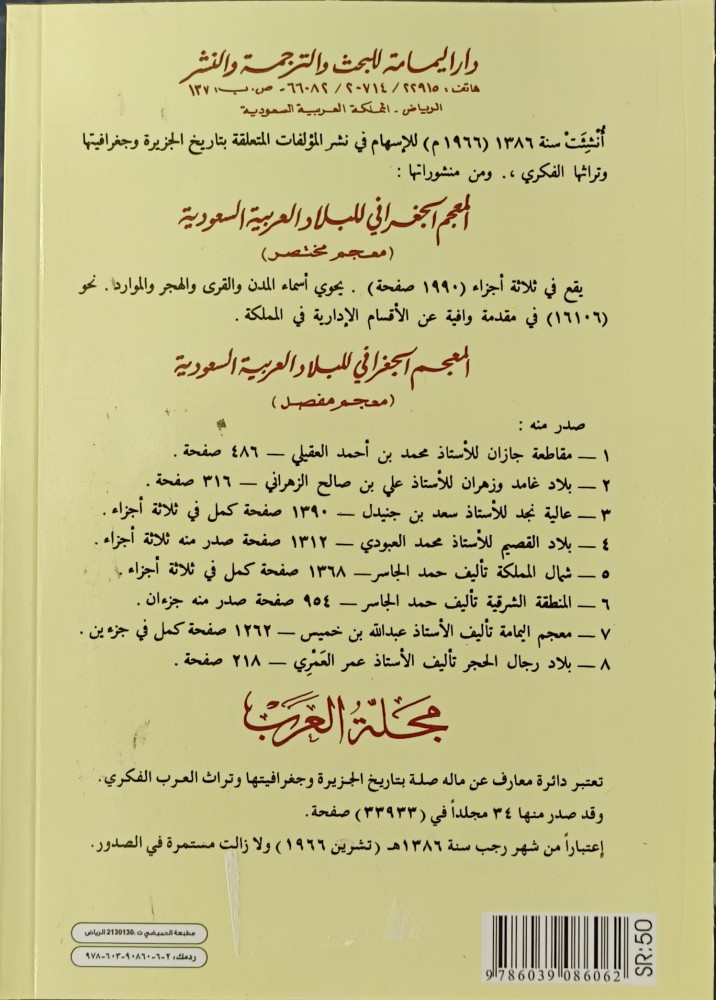 دار اليمامة للبحث والترجمة والنشر
هاتف: ٢٢٩١٥ / ٢٠٧١٤ / ٦٦٠٨٢ - ص. ب: ١٣٧
الرياض - المملكة العربية السعودية
أُنْشِئَتْ سنة ١٣٨٦ (١٩٦٦ م) للإسهام في نشر المؤلفات المتعلقة بتاريخ الجزيرة وجغرافيتها
وتراثها الفكري ،. ومن منشوراتها :
المعجم الجغرافي للبلاد العربية السعودية
(معجم مختصر)
يقع في ثلاثة أجزاء (١٩٩٠ صفحة) . يحوي أسماء المدن والقرى والهجر والموارد . نحو
(١٦١٠٦) في مقدمة وافية عن الأقسام الإدارية في المملكة .
المعجم الجغرافي للبلاد العربية السعودية
(معجم مفصل)
صدر منه :
١ — مقاطعة جازان للأستاذ محمد بن أحمد العقيلي — ٤٨٦ صفحة .
٢ — بلاد غامد وزهران للأستاذ علي بن صالح الزهراني — ٣١٦ صفحة .
٣ — عالية نجد للأستاذ سعد بن جنيدل — ١٣٩٠ صفحة كمل في ثلاثة أجزاء .
٤ — بلاد القصيم للأستاذ محمد العبودي — ١٣١٢ صفحة صدر منه ثلاثة أجزاء .
٥ — شمال المملكة تأليف حمد الجاسر — ١٣٦٨ صفحة كمل في ثلاثة أجزاء .
٦ — المنطقة الشرقية تأليف حمد الجاسر — ٩٥٤ صفحة صدر منه جزءان .
٧ — معجم اليمامة تأليف الأستاذ عبدالله بن خميس — ١٢٦٢ صفحة كمل في جزءين .
٨ — بلاد رجال الحجر تأليف الأستاذ عمر العَمْرِي — ٢١٨ صفحة .
مجلة العرب
تعتبر دائرة معارف عن ماله صلة بتاريخ الجزيرة وجغرافيتها وتراث العرب الفكري .
وقد صدر منها ٣٤ مجلداً في (٣٣٩٣٣) صفحة.
إعتباراً من شهر رجب سنة ١٣٨٦هـ (تشرين ١٩٦٦) ولا زالت مستمرة في الصدور.
مطبعة الحميضي ت: 2130130 الرياض
ردمك: ٢-٦-٩٠٨٦٠-٦٠٣-٩٧٨
9 786039 086062
SR:50